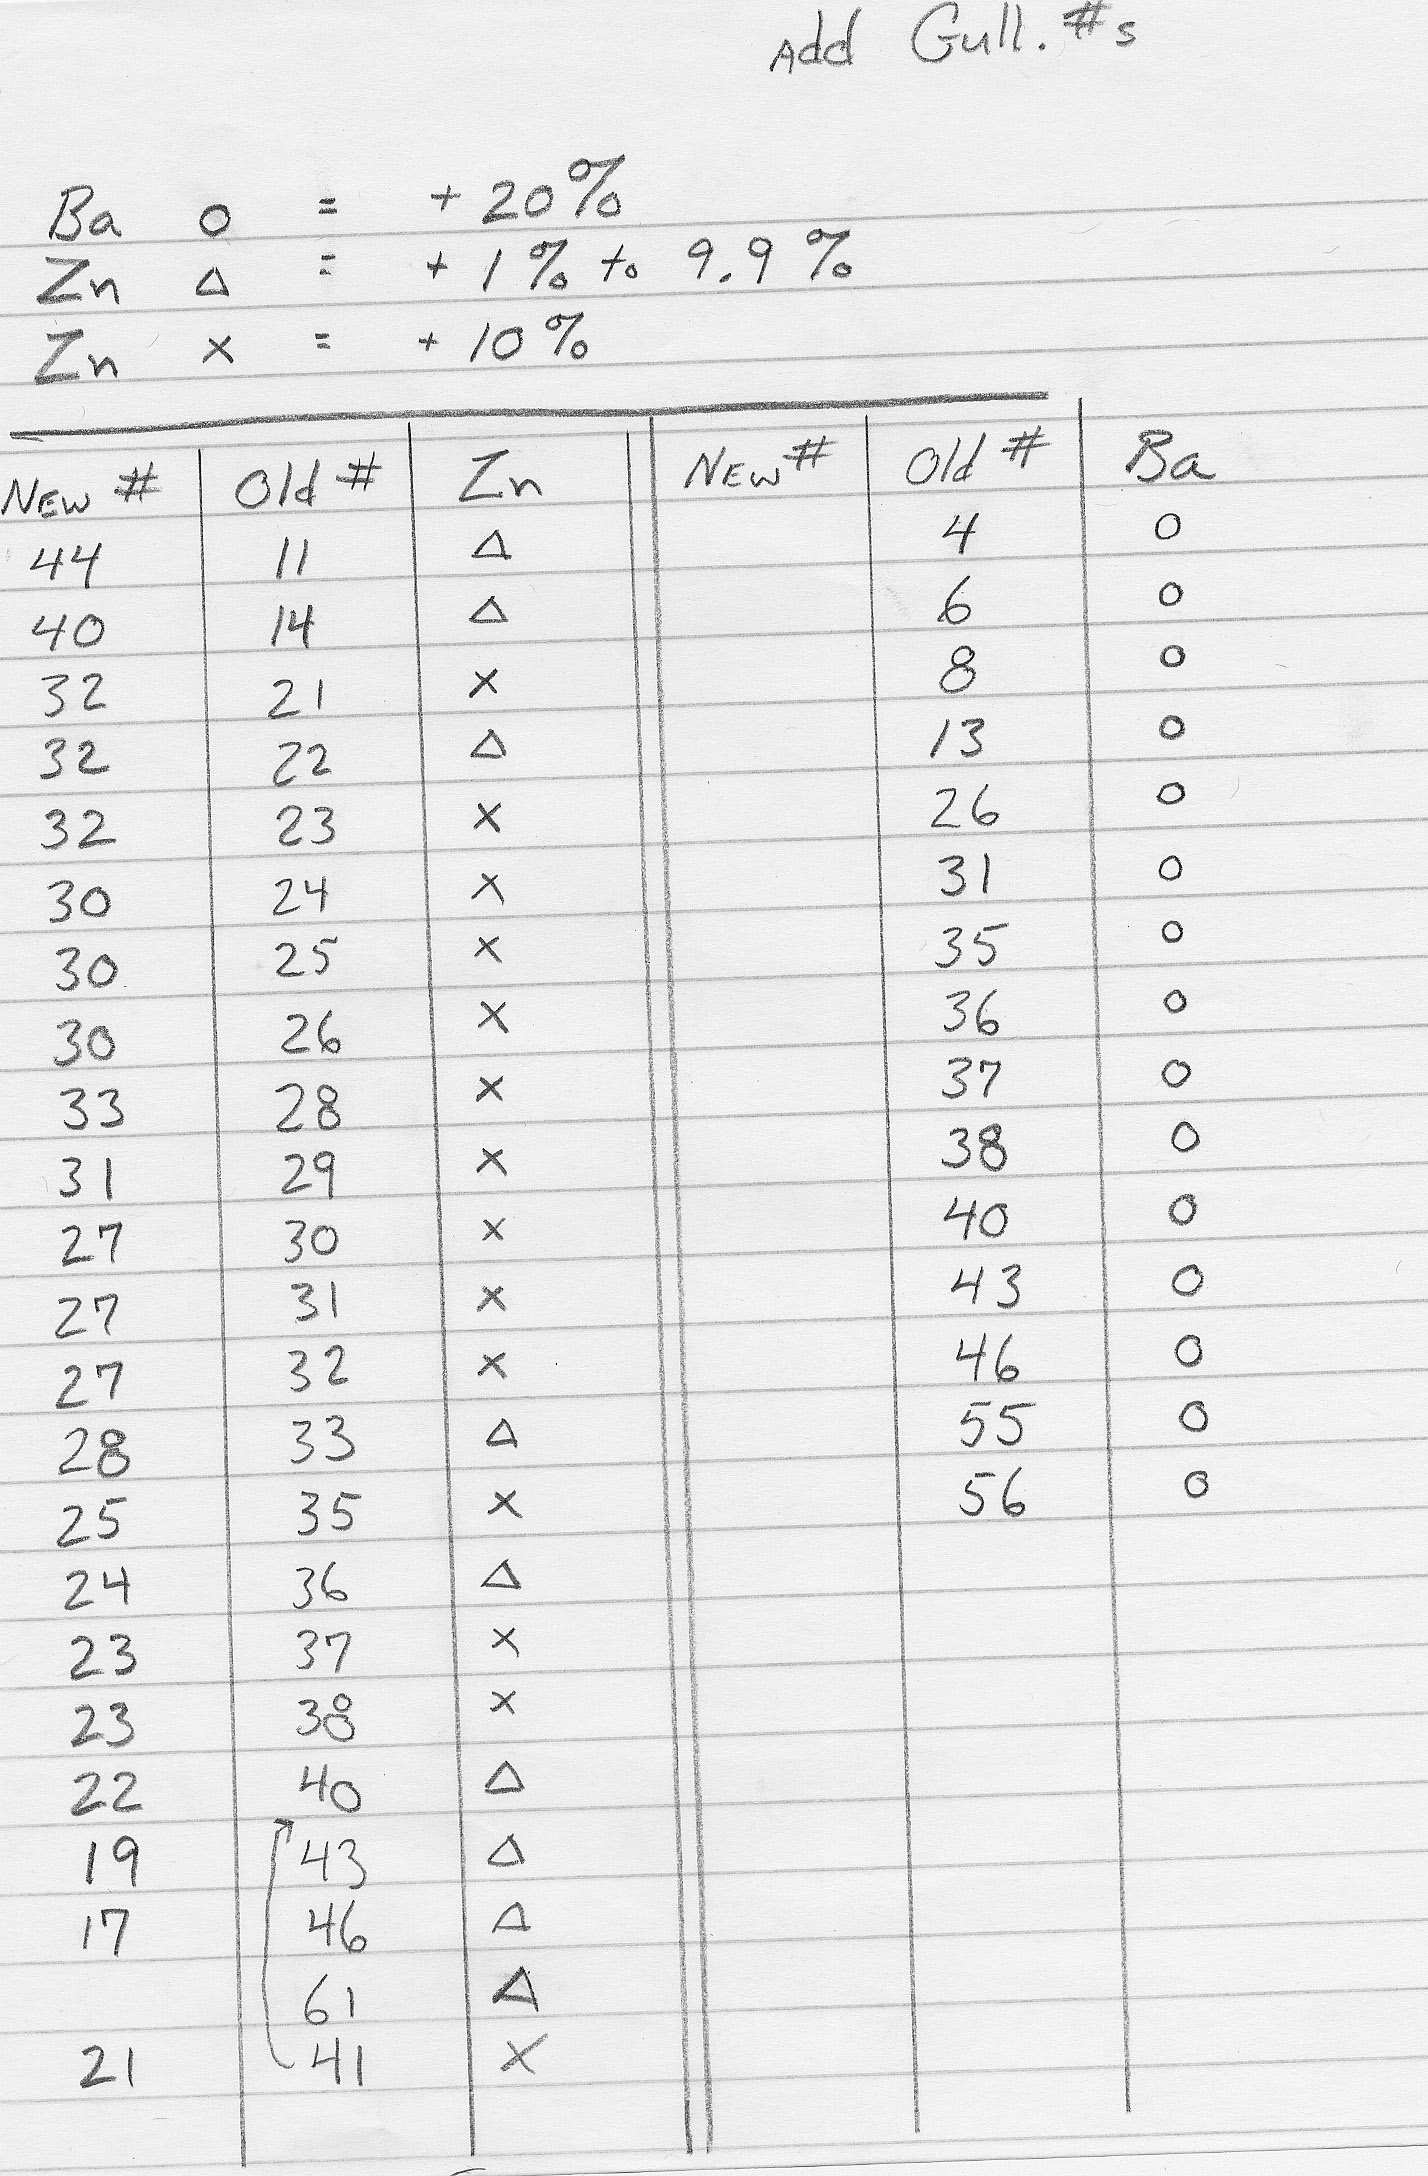 Add Gull. #s
Ba o = + 20%
Zn Δ = + 1% to 9.9%
Zn x = + 10%
New # Old # Zn New # Old # Ba
44 11 Δ 4 o
40 14 Δ 6 o
32 21 x 8 o
32 22 Δ 13 o
32 23 x 26 o
30 24 x 31 o
30 25 x 35 o
30 26 x 36 o
33 28 x 37 o
31 29 x 38 o
27 30 x 40 o
27 31 x 43 o
27 32 x 46 o
28 33 Δ 55 o
25 35 x 56 o
24 36 Δ
23 37 x
23 38 x
22 40 Δ
19 43 Δ
17 46 Δ
61 Δ
21 41 x